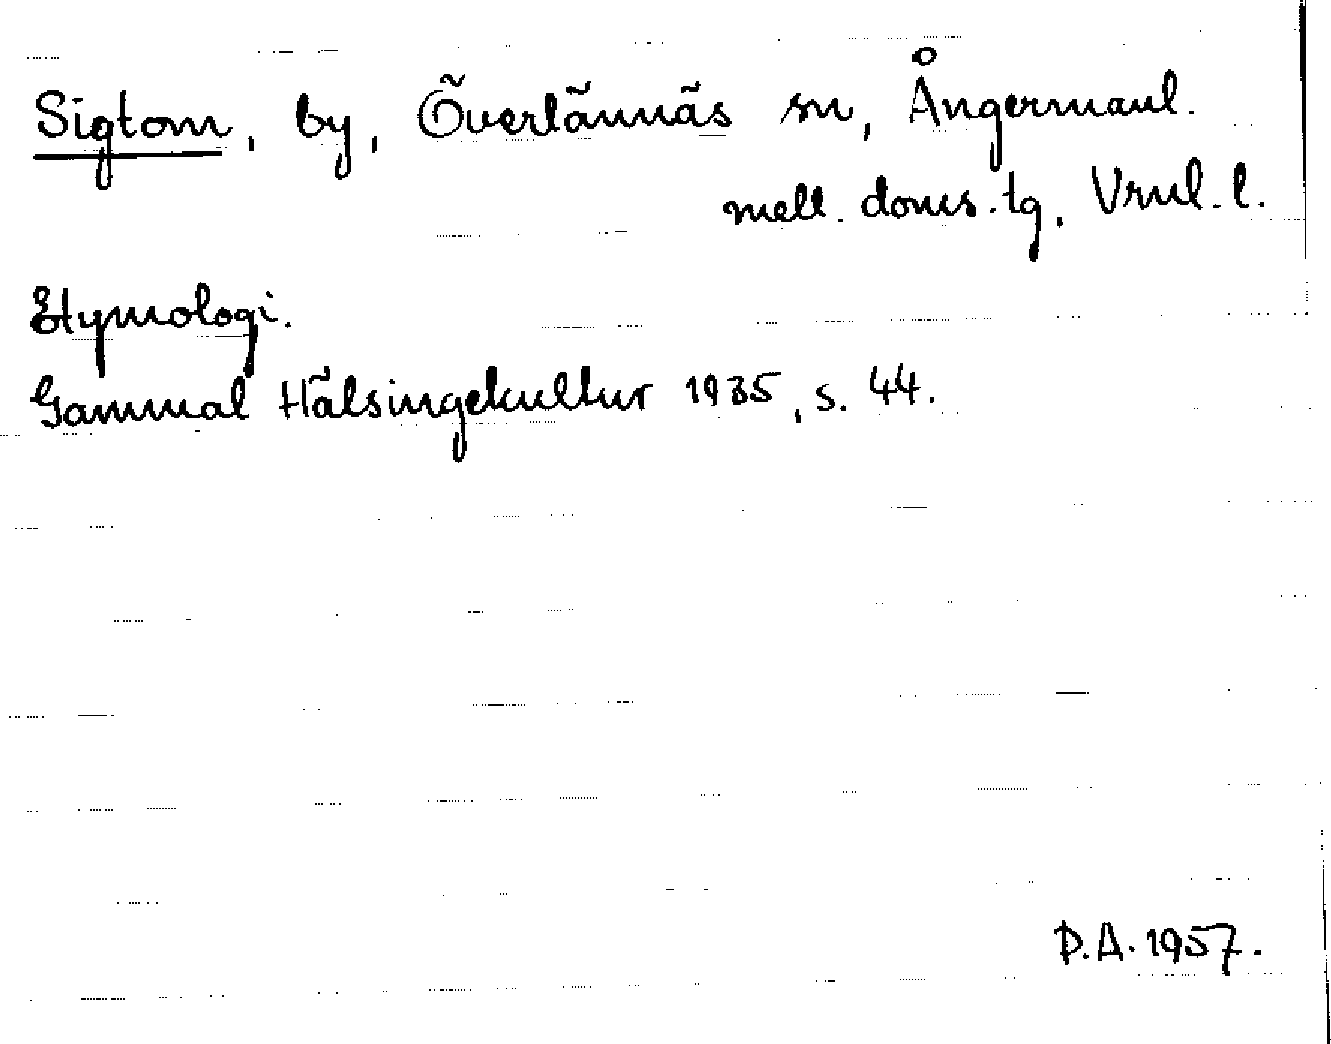 Sigtom, by, Överlännäs sn, Ångermanl.
mell. doms. tg, Vrnl. l.
Etymologi.
Gammal Hälsingekultur 1935, s. 44.
D.A. 1957.